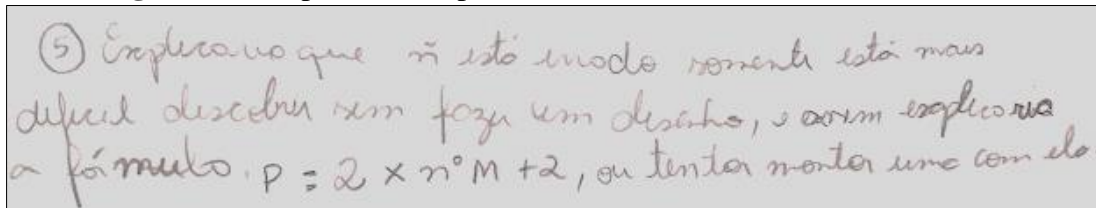 ⑤ Explicava que ñ está errado somente está mais
dificil descobrir sem fazer um desenho, e assim explicaria
a fórmula. P = 2 x nº M + 2, ou tentar montar uma com ela